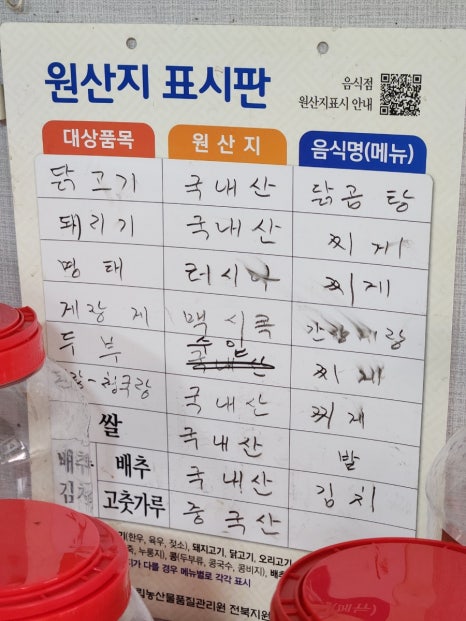 원산지 표시판
음식점
원산지표시 안내
대상품목 원산지 음식명(메뉴)
닭고기 국내산 닭곰탕
돼리기 국내산 찌게
명태 러시아 찌게
게장게 멕시콕
두부 수입 국내산 찌게
국내산 찌게
쌀 국내산 발
배추 배추 국내산 김치
김치 고춧가루 중국산
(한우, 육우, 젖소), 돼지고기, 닭고기, 오리고기
죽, 누룽지), 콩(두부류, 콩국수, 콩비지), 배추
가 다를 경우 메뉴별로 각각 표시
립농산물품질관리원 전북지원